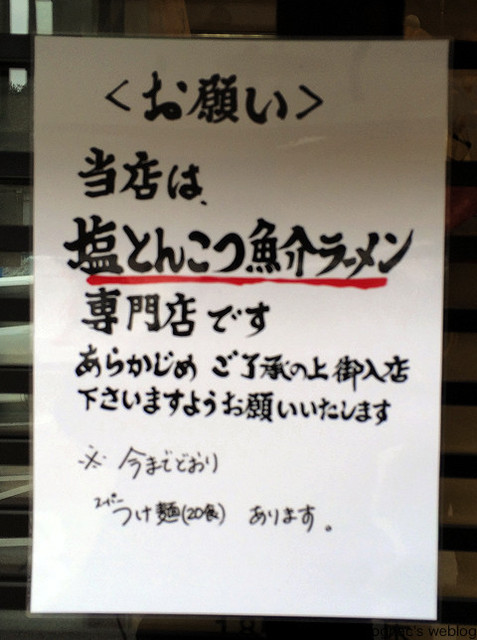 <お願い>
当店は、
塩とんこつ魚介ラーメン
専門店です
あらかじめ ご了承の上 御入店
下さいますようお願いいたします
※ 今までどおり
スーパーつけ麺(20食) あります。
's weblog